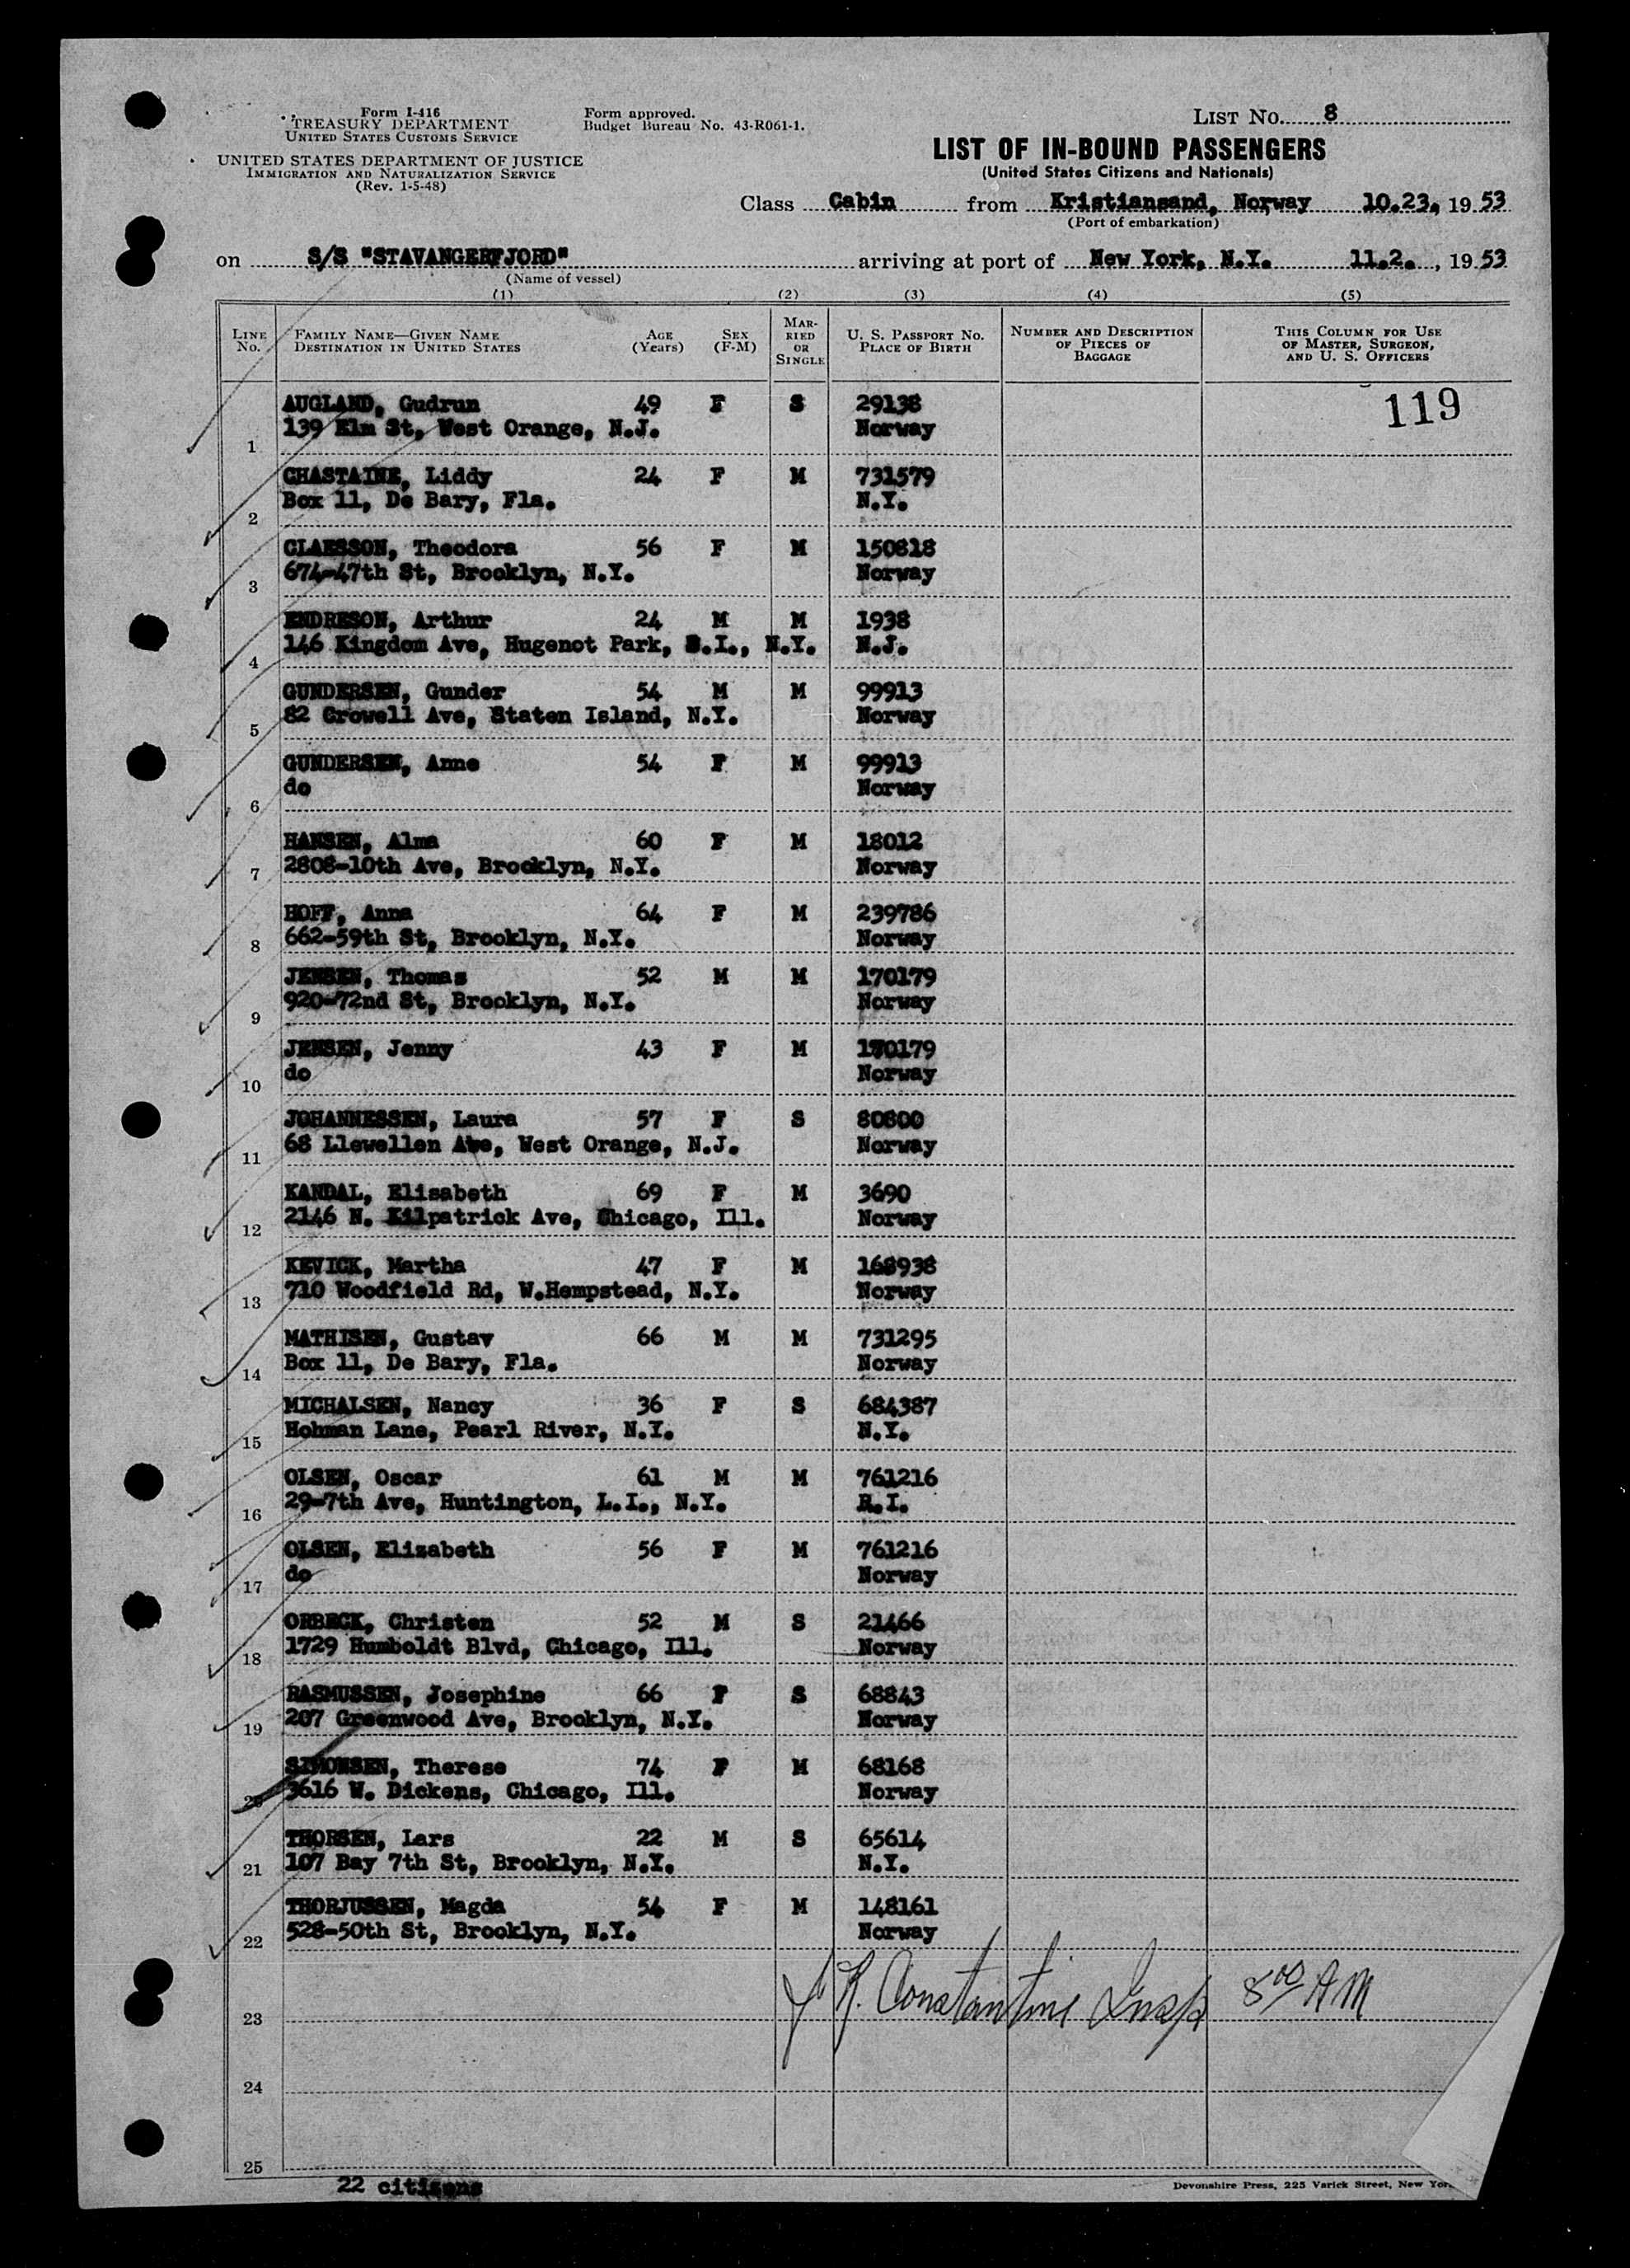 Form I-416
TREASURY DEPARTMENT
UNITED STATES CUSTOMS SERVICE
UNITED STATES DEPARTMENT OF JUSTICE
IMMIGRATION AND NATURALIZATION SERVICE
(Rev. 1-5-48)
Form approved.
Budget Bureau No. 43-R061-1.
LIST No. 8
LIST OF IN-BOUND PASSENGERS
(United States Citizens and Nationals)
Class Cabin from Kristiansand, Norway 10.23, 1953
(Port of embarkation)
on S/S "STAVANGERFJORD" arriving at port of New York, N.Y. 11.2., 1953
(Name of vessel)
(1) (2) (3) (4) (5)
LINE No. FAMILY NAME—GIVEN NAME DESTINATION IN UNITED STATES AGE (Years) SEX (F-M) MARRIED OR SINGLE U. S. PASSPORT NO. PLACE OF BIRTH NUMBER AND DESCRIPTION OF PIECES OF BAGGAGE THIS COLUMN FOR USE OF MASTER, SURGEON, AND U. S. OFFICERS
119
AUGLAND, Gudrun 49 F S 29138
1 139 Elm St, West Orange, N.J. Norway
CHASTAINE, Liddy 24 F M 731579
2 Box 11, De Bary, Fla. N.Y.
CLAESSON, Theodora 56 F M 150818
3 674-47th St, Brooklyn, N.Y. Norway
ENDRESON, Arthur 24 M M 1938
4 146 Kingdom Ave, Hugenot Park, S.I., N.Y. N.J.
GUNDERSEN, Gunder 54 M M 99913
5 82 Crowell Ave, Staten Island, N.Y. Norway
GUNDERSEN, Anne 54 F M 99913
6 do Norway
HANSEN, Alma 60 F M 18012
7 2808-10th Ave, Brooklyn, N.Y. Norway
HOFF, Anna 64 F M 239786
8 662-59th St, Brooklyn, N.Y. Norway
JENSEN, Thomas 52 M M 170179
9 920-72nd St, Brooklyn, N.Y. Norway
JENSEN, Jenny 43 F M 170179
10 do Norway
JOHANNESSEN, Laura 57 F S 80800
11 68 Llewellen Ave, West Orange, N.J. Norway
KANDAL, Elisabeth 69 F M 3690
12 2146 N. Kilpatrick Ave, Chicago, Ill. Norway
KEVICK, Martha 47 F M 168938
13 710 Woodfield Rd, W.Hempstead, N.Y. Norway
MATHISEN, Gustav 66 M M 731295
14 Box 11, De Bary, Fla. Norway
MICHALSEN, Nancy 36 F S 684387
15 Hohman Lane, Pearl River, N.Y. N.Y.
OLSEN, Oscar 61 M M 761216
16 29-7th Ave, Huntington, L.I., N.Y. R.I.
OLSEN, Elizabeth 56 F M 761216
17 do Norway
ORBECK, Christen 52 M S 21466
18 1729 Humboldt Blvd, Chicago, Ill. Norway
RASMUSSEN, Josephine 66 F S 68843
19 207 Greenwood Ave, Brooklyn, N.Y. Norway
SIMONSEN, Therese 74 F M 68168
20 3616 W. Dickens, Chicago, Ill. Norway
THORSEN, Lars 22 M S 65614
21 107 Bay 7th St, Brooklyn, N.Y. N.Y.
THORJUSSEN, Magda 54 F M 148161
22 528-50th St, Brooklyn, N.Y. Norway
K. Constantine Insp 8 00 AM
23
24
25
22 citizens
Devonshire Press, 225 Varick Street, New